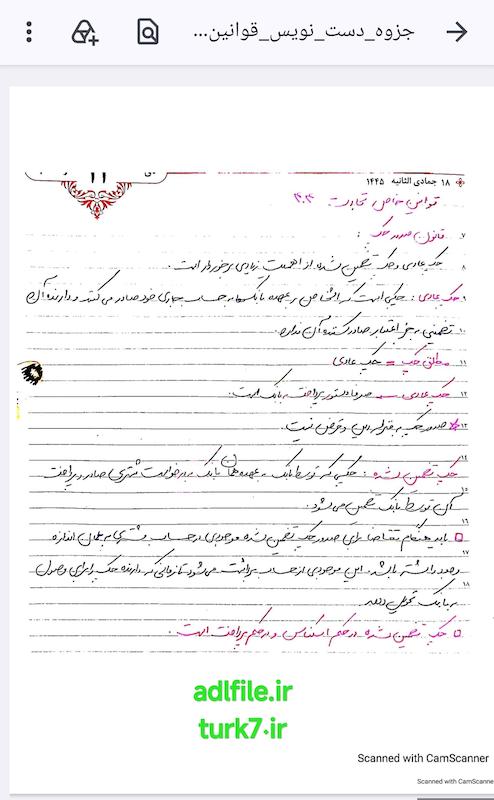 جزوه_دست_نویس_قوانین...
۱۸ جمادی الثانیه ۱۴۴۵
۱۱
قوانین خاص تجارت
۷ قانون صدور چک :
۸ چک عادی و چک تضمین شده از اهمیت زیادی برخوردار است.
۹ چک عادی : چکی است که اشخاص بر عهده بانک‌ها به حساب جاری خود صادر می کنند و دارنده آن
۱۰ تضمینی به جز اعتبار صادر کننده آن ندارد.
۱۱ مطلق چک = چک عادی
۱۲ چک عادی = صرفا دستور پرداخت به بانک است.
۱۳ صدور چک به منزله دین و قرض نیست.
۱۴
چک تضمین شده : چکی که توسط بانک به عهده همان بانک به درخواست مشتری صادر و پرداخت
۱۵
آن توسط بانک تضمین می شود.
۱۶
باید هنگام تقاضا برای صدور چک تضمین شده موجودی در حساب مشتری به همان اندازه
۱۷
وجود داشته باشد. این موجودی از حساب برداشت می شود تا زمانی که دارنده چک را برای وصول
۱۸
به بانک تحویل دهد
چک تضمین شده در حکم اسکناس و در حکم پرداخت است.
adlfile.ir
turk7.ir
Scanned with CamScanner
Scanned with CamScanne